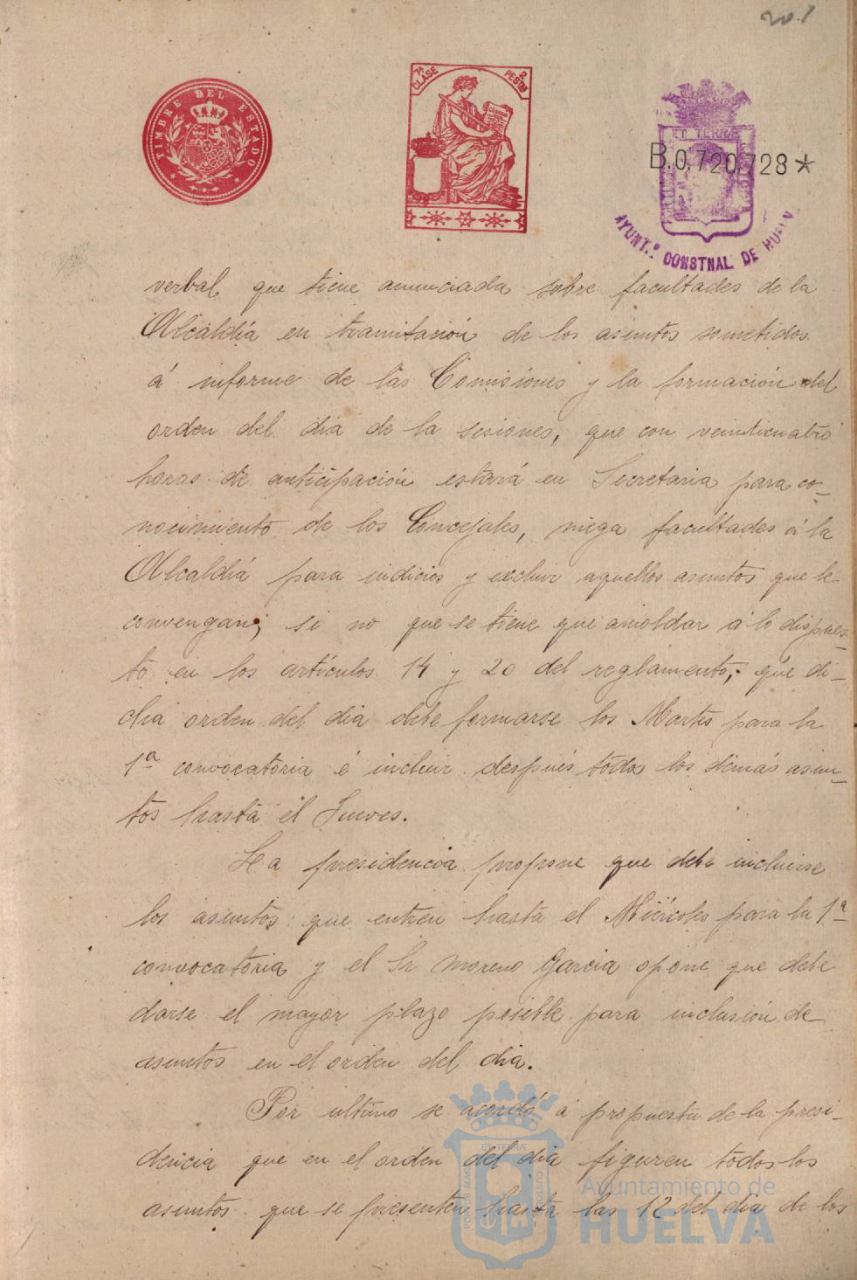 201
TIMBRE DEL ESTADO
7ª CLASE 2 PESTAS
EN TERRA
B.0,720,728*
AYUNT.º CONSTNAL DE HUELV
verbal que tiene anunciada sobre facultades de la
Alcaldía en tramitación de los asuntos sometidos
á informe de las Comisiones y la formación del
orden del dia de la sesiones, que con veinticuatro
horas de anticipación estará en Secretaria para co-
nocimiento de los Concejales, niega facultades á la
Alcaldía para indicios y excluir aquellos asuntos que le
convengan; si no que se tiene que amoldar á lo dispues-
to en los artículos 14 y 20 del reglamento; que di-
cha orden del dia debe formarse los Martes para la
1ª convocatoria é incluir después todos los demás asun-
tos hasta el Jueves.
La presidencia propone que debe incluirse
los asuntos que entren hasta el Miércoles para la 1ª
convocatoria y el Sr Moreno Garcia opone que debe
darse el mayor plazo posible para inclusión de
asuntos en el orden del dia.
Por ultimo se acordó á propuesta de la presi-
dencia que en el orden del dia figuren todos los
asuntos que se presenten hasta las 12 del dia de los
Ayuntamiento de
HUELVA